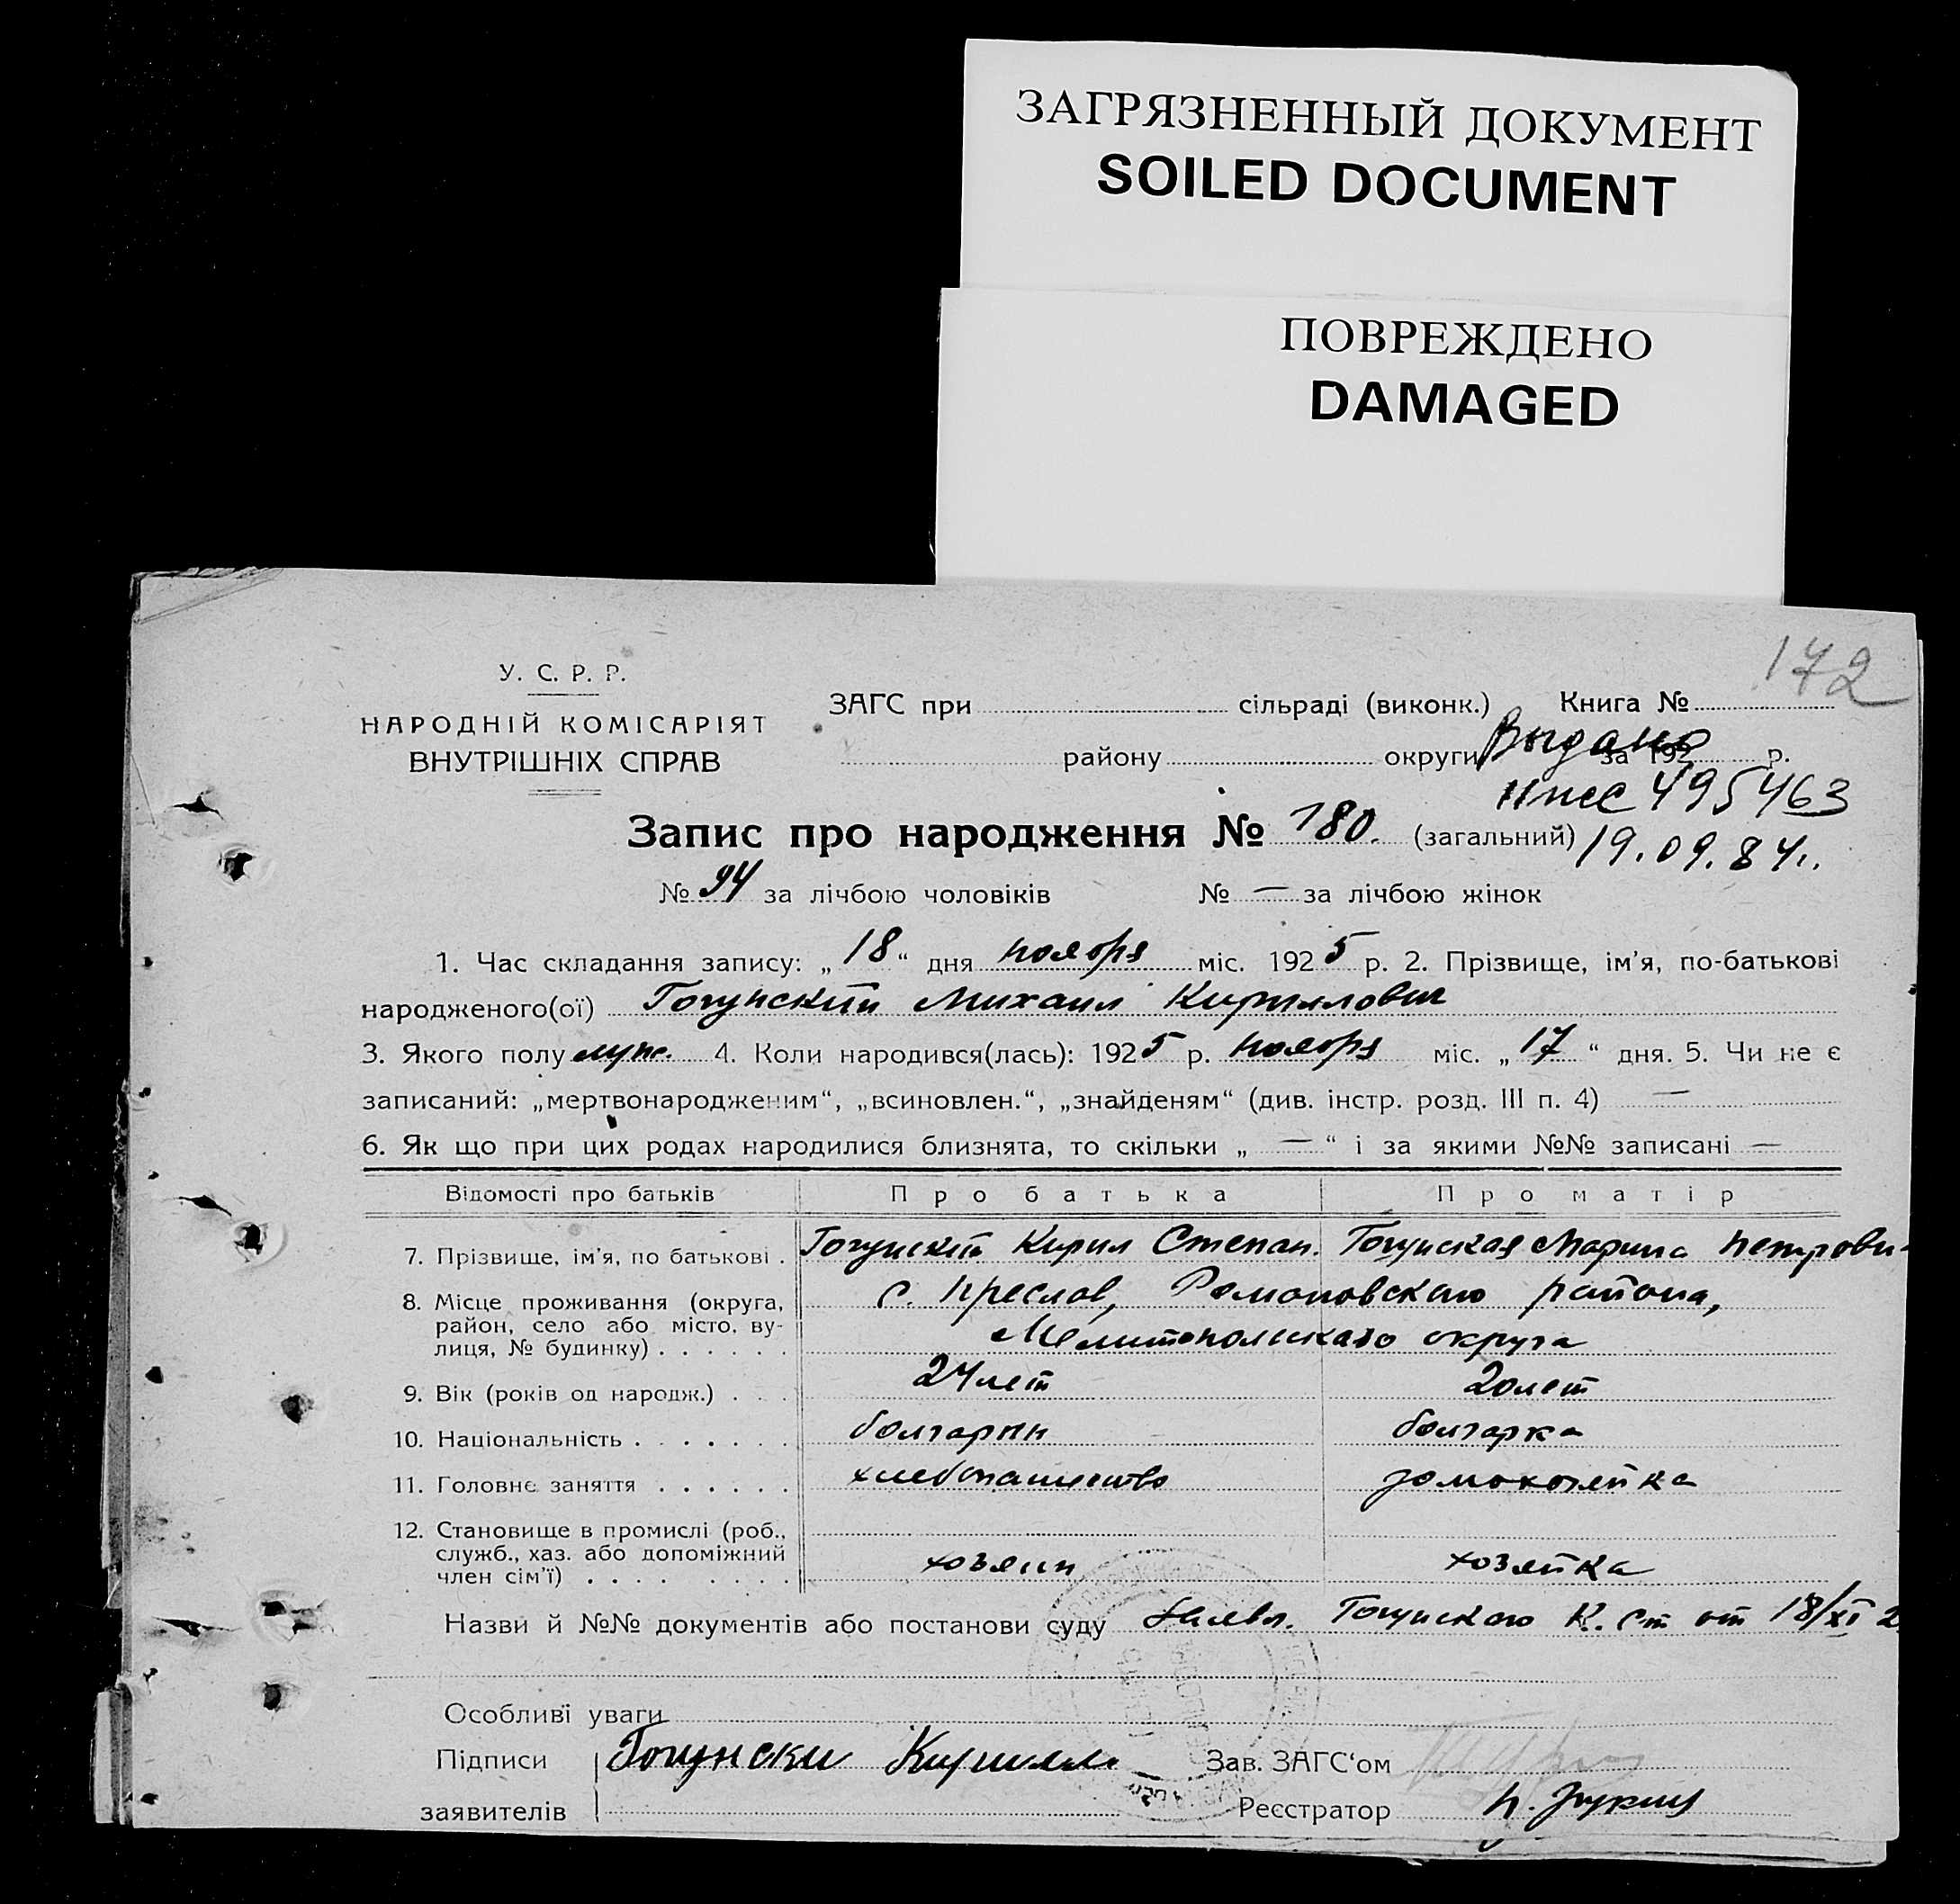 ЗАГРЯЗНЕННЫЙ ДОКУМЕНТ
SOILED DOCUMENT
ПОВРЕЖДЕНО
DAMAGED
172
У. С. Р. Р.
НАРОДНІЙ КОМІСАРІЯТ
ВНУТРІШНІХ СПРАВ
ЗАГС при сільраді (виконк.) Книга №
району округи за 192 р.
Выдано
495463
19.09.84г.
Запис про народження № 180. (загальний)
№ 94 за лічбою чоловіків № — за лічбою жінок
1. Час складання запису: „18“ дня ноября міс. 1925 р. 2. Прізвище, ім’я, по-батькові
народженого(ої) Гогунский Михаил Кириллович
3. Якого полу муж. 4. Коли народився(лась): 1925 р. ноября міс. „17“ дня. 5. Чи не є
записаний: „мертвонародженим“, „всиновлен.“, „знайденям“ (див. інстр. розд. III п. 4) —
6. Як що при цих родах народилися близнята, то скільки „ — “ і за якими №№ записані —
Відомості про батьків Про батька Про матір
7. Прізвище, ім’я, по батькові . Гогунский Кирил Степан. Гогунская Марина Петрови-
8. Місце проживання (округа, район, село або місто, вулиця, № будинку) . . . . . . с. Преслав, Романовского района,
Мелитопольского округа
9. Вік (років од народж.) . . . 24 лет 20 лет
10. Національність . . . . . . . болгарин болгарка
11. Головне заняття . . . . . . хлебопашество домохозяйка
12. Становище в промислі (роб.,
служб., хаз. або допоміжний
член сім’ї) . . . . . . . . хозяин хозяйка
Назви й №№ документів або постанови суду Заявл. Гогунского К. Ст от 18/XI 2
Особливі уваги
Підписи Гогунски Кирилл Зав. ЗАГС‘ом
заявителів Реєстратор